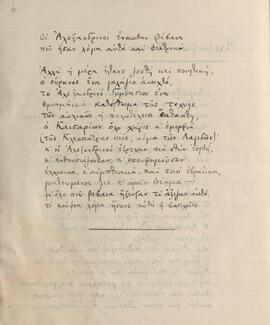 6
Οἱ Ἀλεξανδρινοὶ ἔνοιωθαν βέβαια
ποῦ ἦσαν λόγια αὐτὰ καὶ θεατρικά.
Ἀλλὰ ἡ μέρα ἤτανε ζεστὴ καὶ ποιητική,
ὁ οὐρανὸς ἕνα γαλάζιο ἀνοιχτό,
τὸ Ἀλεξανδρινὸ Γυμνάσιον ἕνα
θριαμβικὸ κατόρθωμα τῆς τέχνης,
τῶν αὐλικῶν ἡ πολυτέλεια ἔκτακτη,
ὁ Καισαρίων ὅλο χάρις κ' ἐμορφιὰ
(τῆς Κλεοπάτρας υἱός, αἷμα τῶν Λαγιδῶν)·
κ' οἱ Ἀλεξανδρινοὶ ἔτρεχαν πιὰ στὴν ἑορτή,
κ' ἐνθουσιάζονταν, κ' ἐπευφημοῦσαν
ἑλληνικά, κ' αἰγυπτιακά, καὶ ποιοὶ ἑβραίικα,
γοητευμένοι μὲ τ' ὡραῖο θέαμα —
μ' ὅλο ποῦ βέβαια ἤξευραν τί ἄξιζαν αὐτά,
τί κούφια λόγια ἤσανε αὐτὲς ἡ βασιλεῖες.